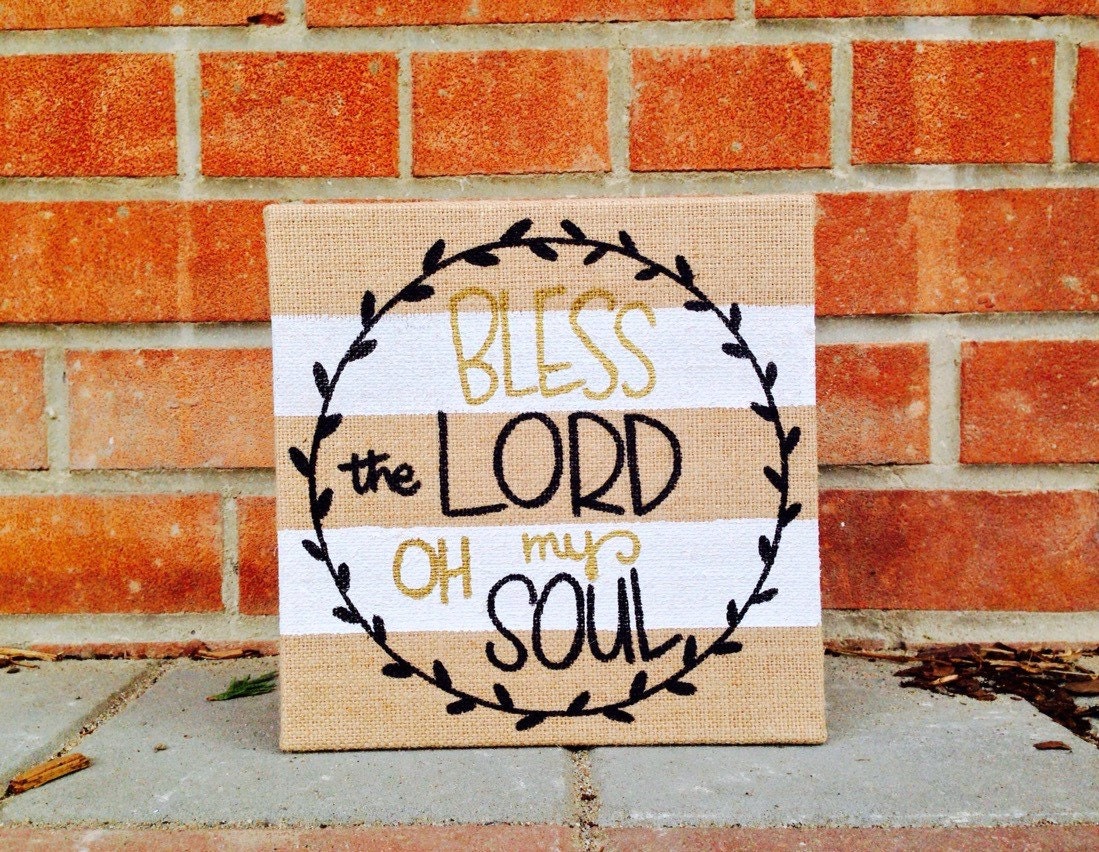 BLESS
the LORD
OH my
SOUL